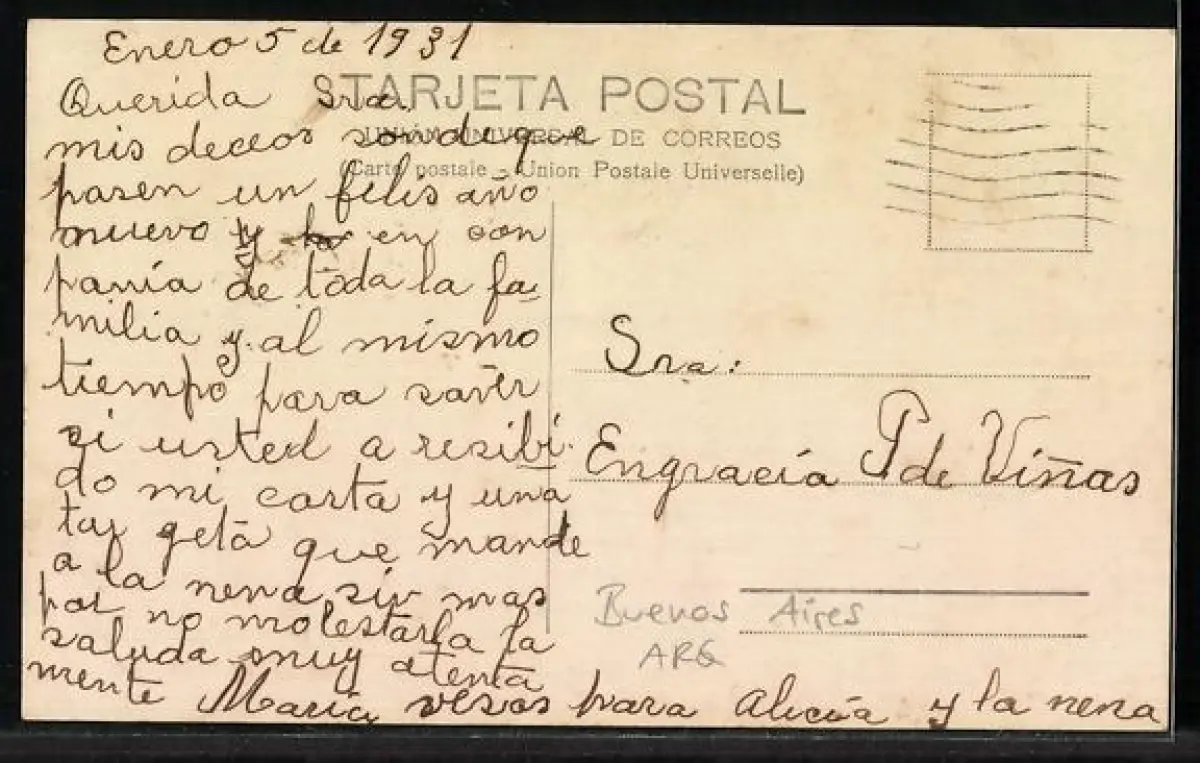 Enero 5 de 1931
Querida Sra.
mis deceos son de que
pasen un felis año
nuevo y en con
pania de toda la fa-
milia y al mismo
tiempo para saver
si usted a resibi-
do mi carta y una
tar geta que mande
a la nena sin mas
por no molestarla la
saluda muy atenta
mente Maria vesos para alicia y la nena
TARJETA POSTAL
UNIÓN UNIVERSAL DE CORREOS
(Carte postale - Union Postale Universelle)
Sra:
Engracia P de Viñas
Buenos Aires
ARG